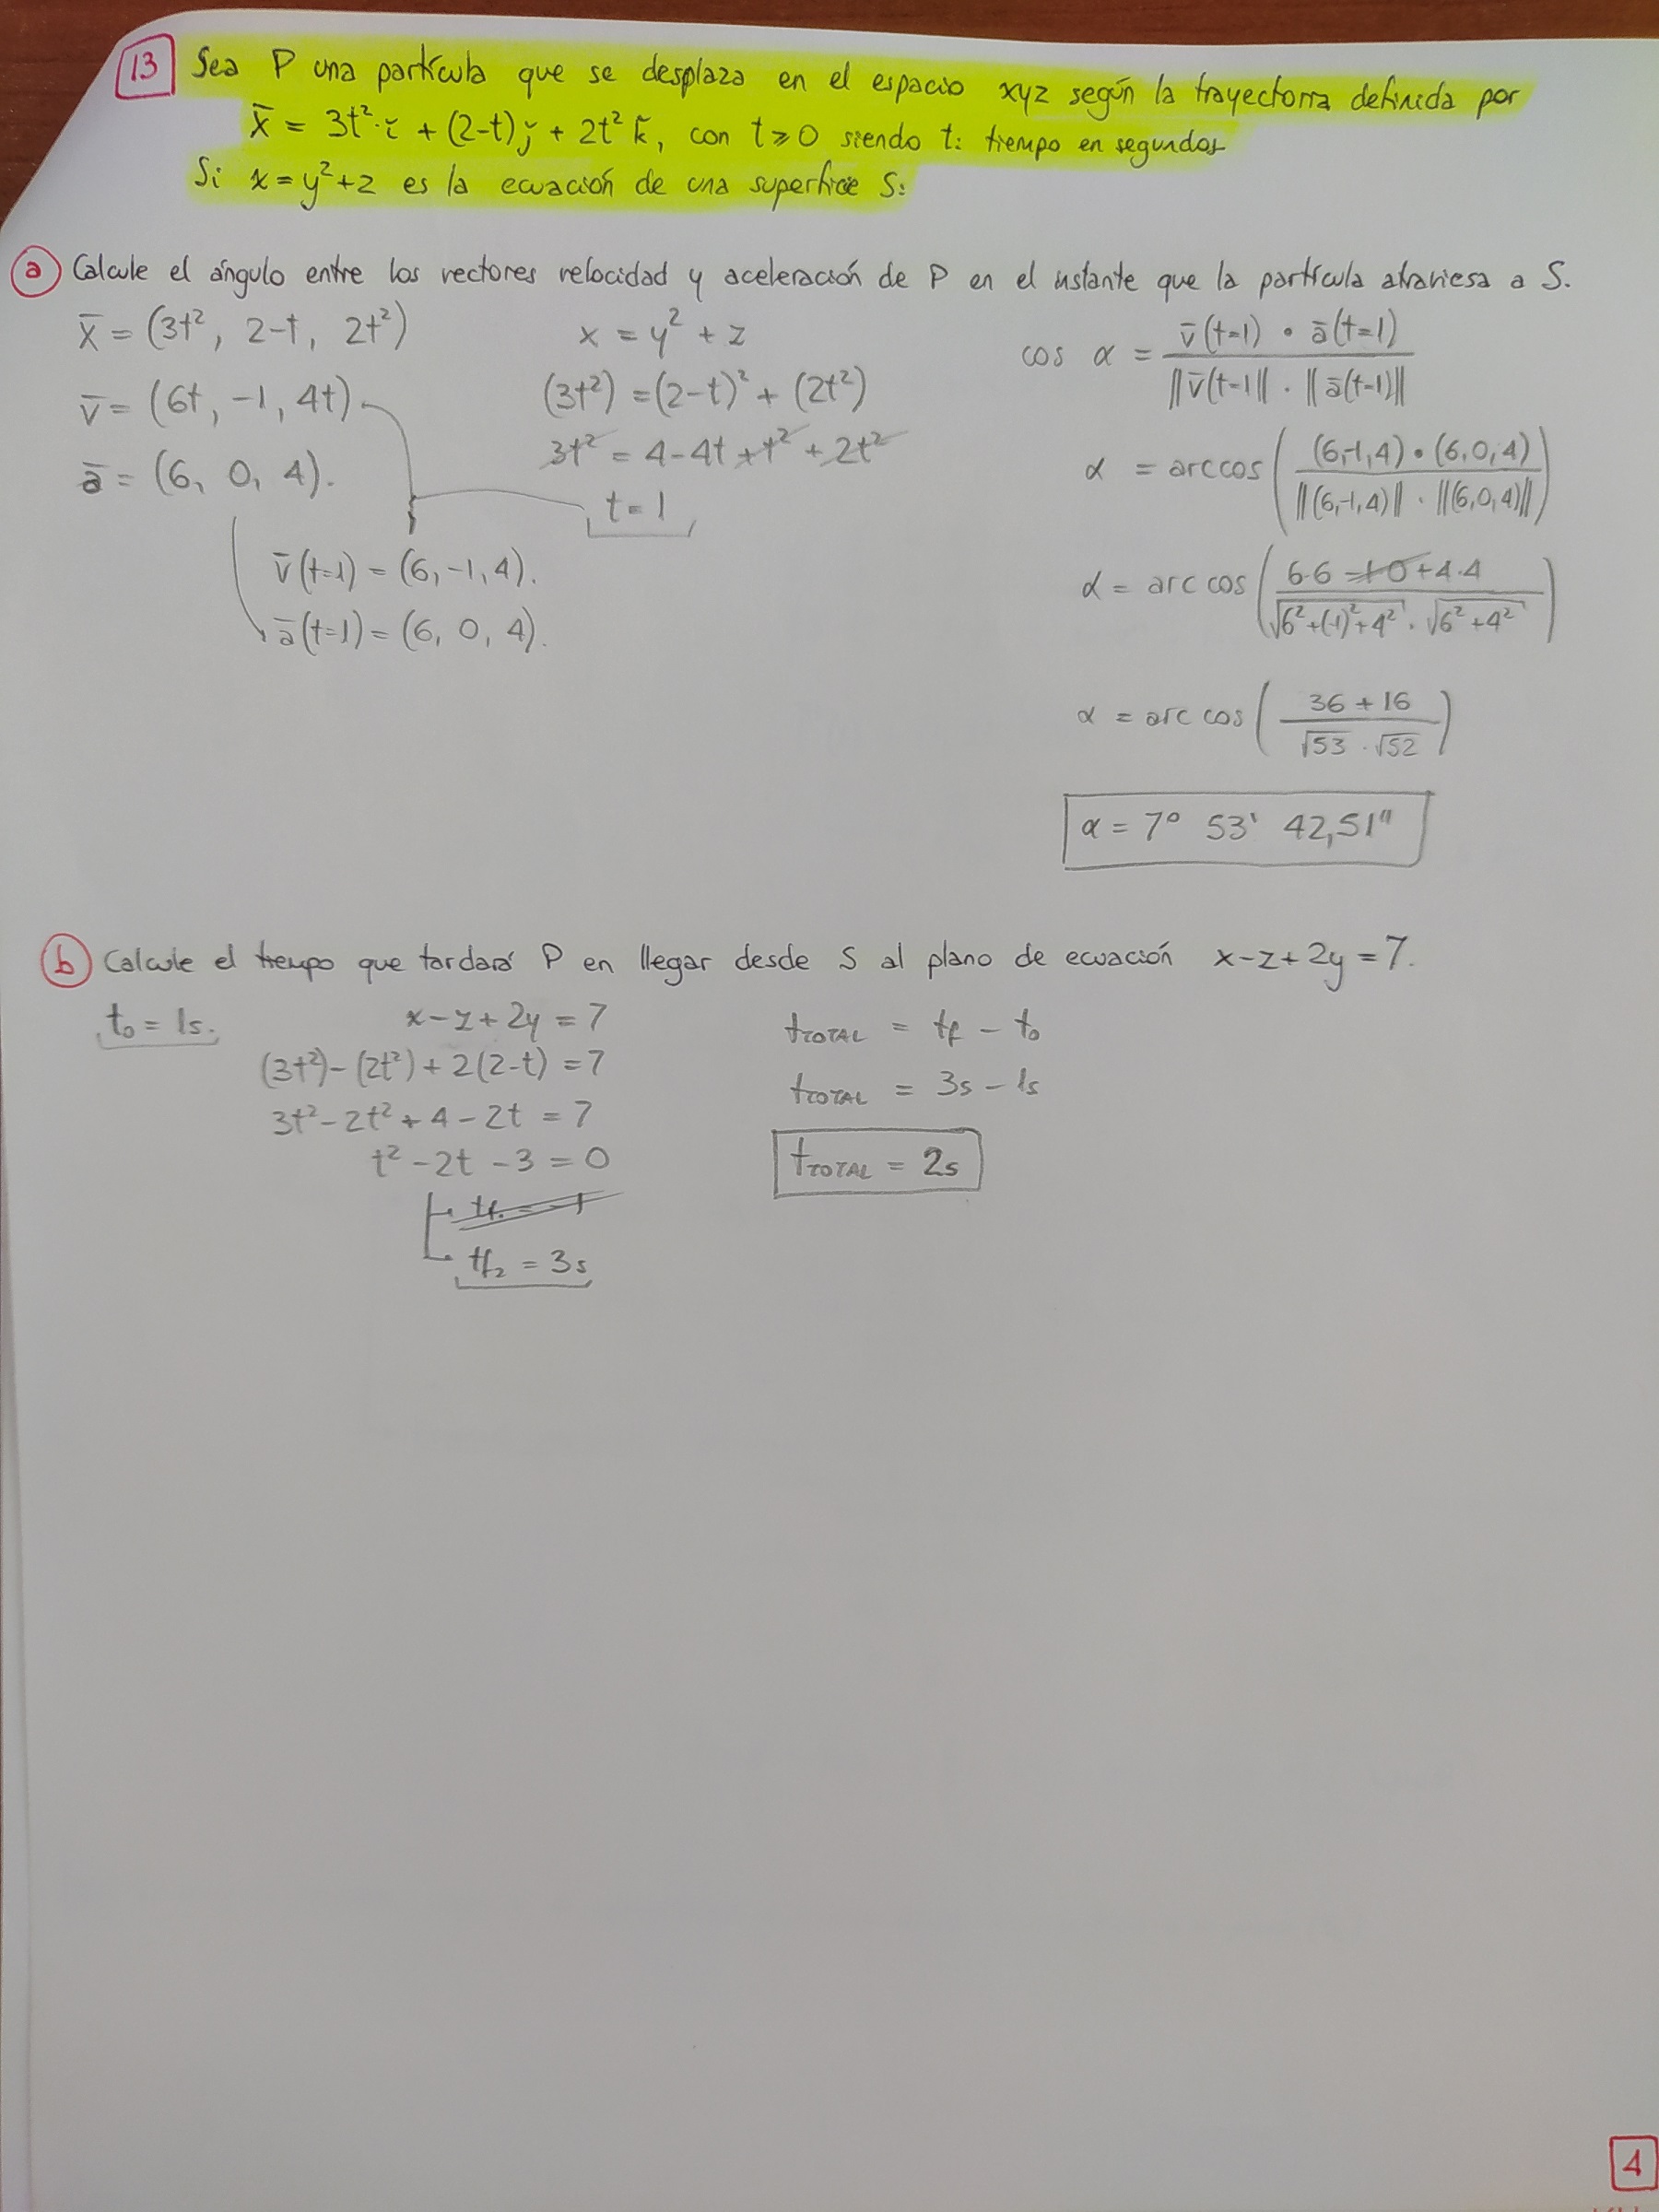 13 Sea P una partícula que se desplaza en el espacio xyz según la trayectoria definida por
x̄ = 3t²·ĭ + (2-t)j̆ + 2t² k̆, con t ≥ 0 siendo t: tiempo en segundos
Si x = y²+z es la ecuación de una superficie S:
a Calcule el ángulo entre los vectores velocidad y aceleración de P en el instante que la partícula atraviesa a S.
x̄ = (3t², 2-t, 2t²)
v̄ = (6t, -1, 4t)
ā = (6, 0, 4).
v̄(t=1) = (6, -1, 4).
ā(t=1) = (6, 0, 4).
x = y² + z
(3t²) = (2-t)² + (2t²)
3t² = 4-4t+t²+2t²
t = 1
cos α = v̄(t=1) • ā(t=1) / ‖v̄(t=1‖ · ‖ā(t=1)‖
α = arccos( (6,-1,4) • (6,0,4) / ‖(6,-1,4)‖ · ‖(6,0,4)‖ )
α = arc cos( 6·6 -1·0 +4·4 / √6²+(-1)²+4² · √6²+4² )
α = arc cos( 36 + 16 / √53 · √52 )
α = 7° 53' 42,51"
b Calcule el tiempo que tardará P en llegar desde S al plano de ecuación x-z+2y = 7.
t₀ = 1s.
x-z+2y = 7
(3t²)-(2t²)+2(2-t) = 7
3t²-2t²+4-2t = 7
t²-2t-3 = 0
tf₁ = -1
tf₂ = 3s
tTOTAL = tf - t₀
tTOTAL = 3s - 1s
tTOTAL = 2s
4